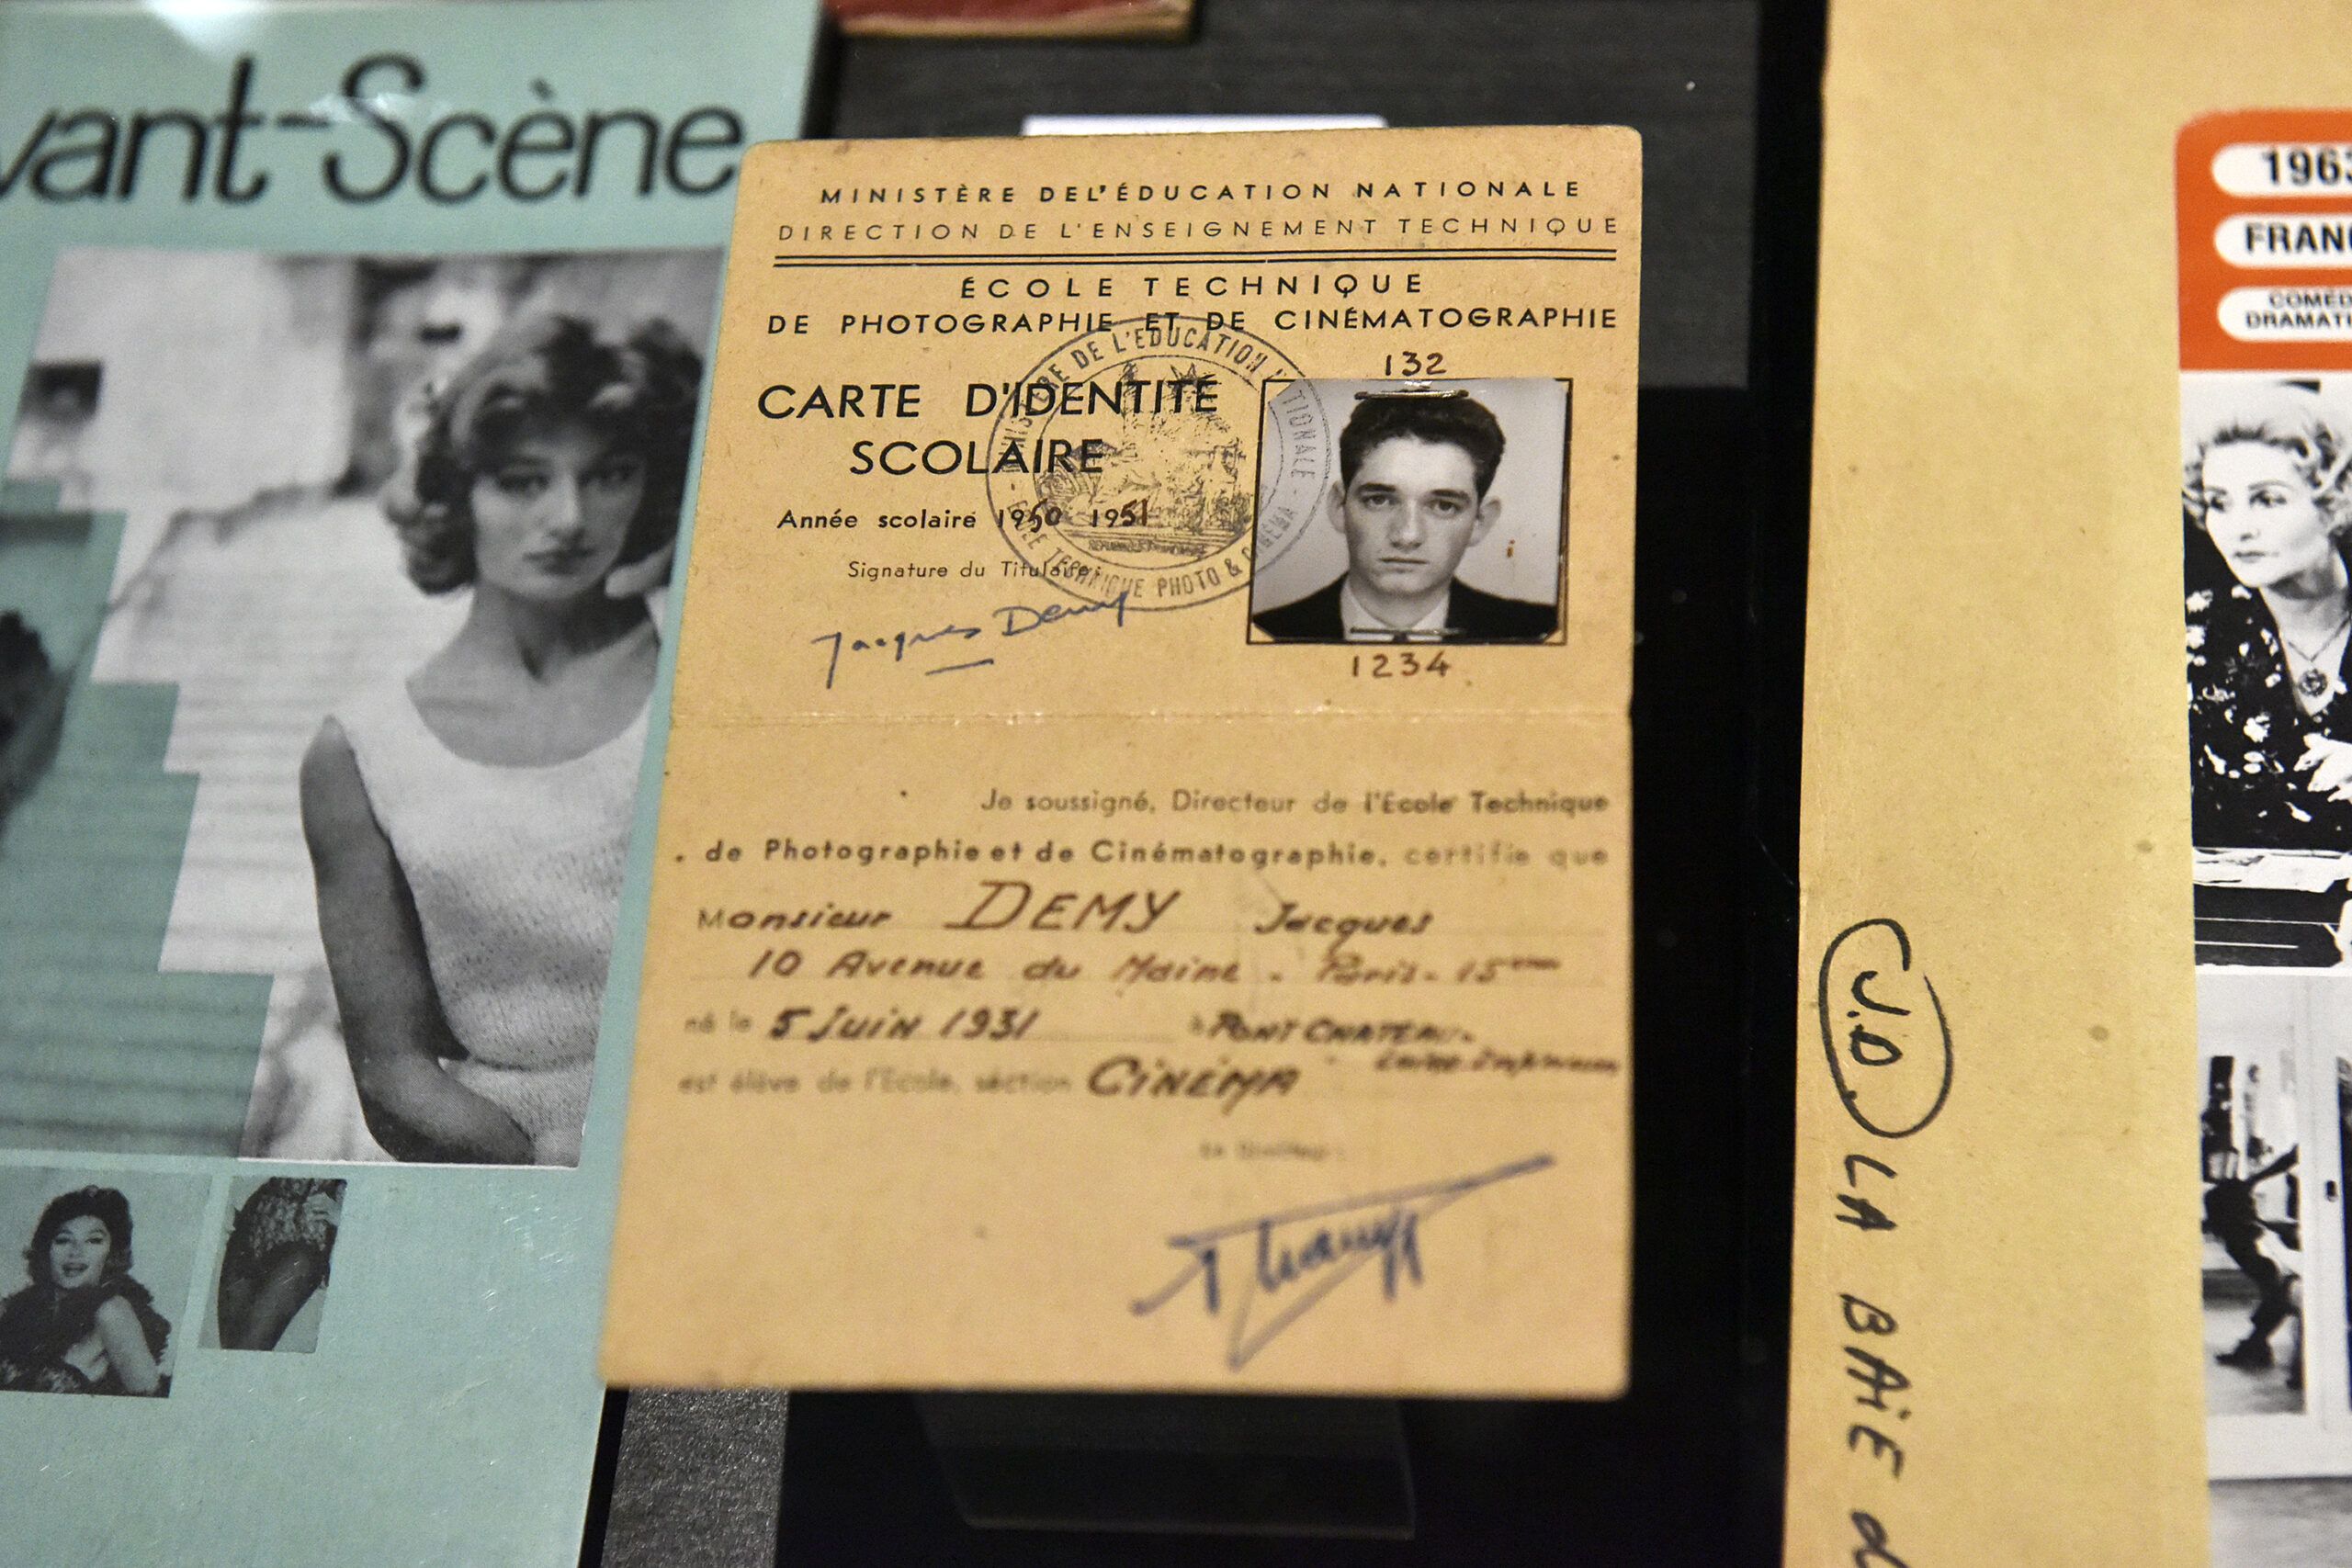 vant-Scène
MINISTÈRE DEL'ÉDUCATION NATIONALE
DIRECTION DE L'ENSEIGNEMENT TECHNIQUE
ÉCOLE TECHNIQUE
DE PHOTOGRAPHIE ET DE CINÉMATOGRAPHIE
132
CARTE D'IDENTITÉ
SCOLAIRE
Année scolaire 1950 1951
Signature du Titulaire:
Jacques Demy
1234
DE L'ÉDUCATION
TECHNIQUE PHOTO & CINÉMA
Je soussigné, Directeur de l'École Technique
de Photographie et de Cinématographie, certifie que
Monsieur DEMY Jacques
10 Avenue du Maine - Paris - 15eme
né le 5 Juin 1931 à PONT CHATEAU -
Loire Inférieure
est élève de l'École, séction CINÉMA
Le Directeur:
1963
FRAN
COMÉD
DRAMATI
J.D. LA BAiE d